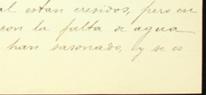 al estan cresidos, pero en
con la falta de agua
han sasonado, y se es